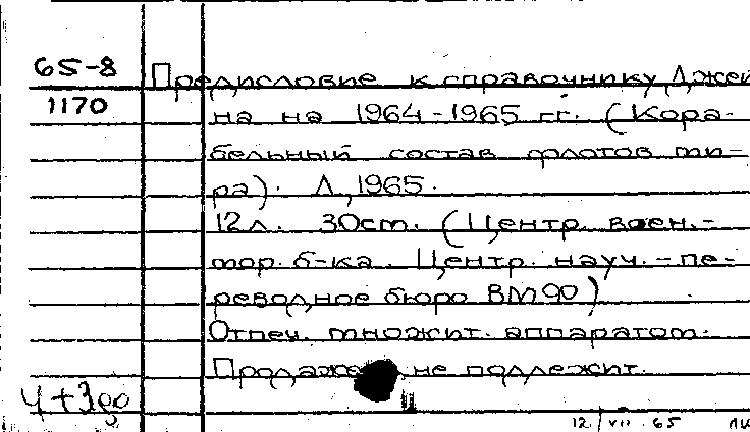 65-8
1170
Предисловие к справочнику Джей
на на 1964-1965 гг. (Кора-
бельный состав флотов ми-
ра). Л, 1965.
12л. 30см. (Центр. воен.-
мор. б-ка. Центр. науч.-пе-
реводное бюро ВМ90)
Отпеч. множит. аппаратом.
Продаже не подлежит.
12/VII 65